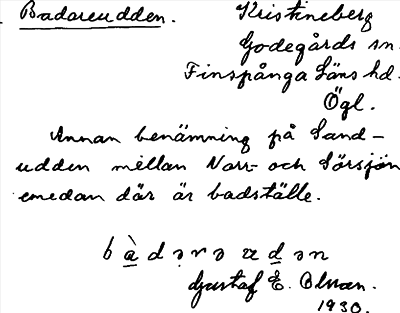 Badareudden. Kristineberg
Godegårds sn.
Finspånga Läns hd.
Ögl.
Annan benämning på Sand-
udden mellan Norr- och Sörsjön
emedan där är badställe.
Gustaf E. Olsson.
1930.